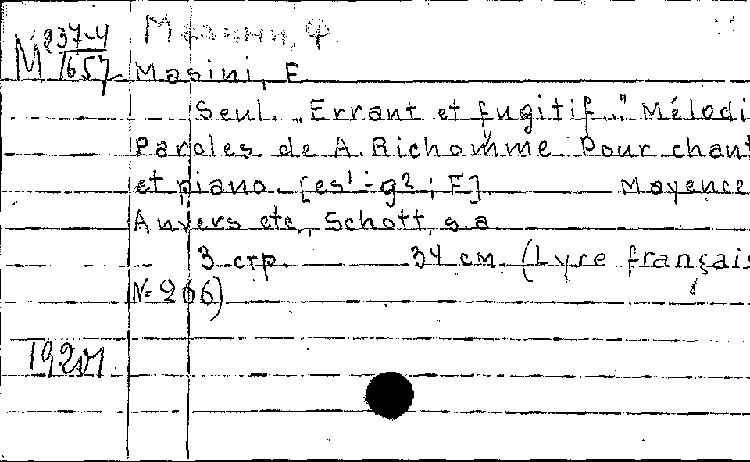 М 237-4 Мазини, Ф
1657 Masini, F
Seul. „Errant et fugitif..." Mélodi
Paroles de A. Richomme Pour chant
et piano. [es¹-g²; F] Mayence
Anvers etc., Schott, s a
3 стр. 34 см. (Lyre français
№ 266)